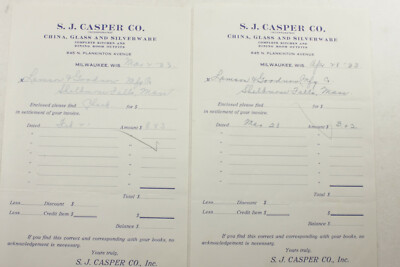 S. J. CASPER CO.
CHINA, GLASS AND SILVERWARE
COMPLETE KITCHEN AND
DINING ROOM OUTFITS
MILWAUKEE, WIS.
Lamson & Goodnow Mfg Co
Shelburn Falls, Mass
Enclosed please find Check for $
in settlement of your invoice:
Dated Amount $
Total $
Less Discount $
Less Credit Item $
Balance $
If you find this correct and corresponding with your books, no
acknowledgement is necessary.
Yours truly,
S. J. CASPER CO., Inc.
S. J. CASPER CO.
CHINA, GLASS AND SILVERWARE
COMPLETE KITCHEN AND
DINING ROOM OUTFITS
MILWAUKEE, WIS.
Lamson & Goodnow Mfg Co
Shelburn Falls, Mass
Enclosed please find for $
in settlement of your invoice:
Dated Amount $
Total $
Less Discount $
Less Credit Item $
Balance $
If you find this correct and corresponding with your books, no
acknowledgement is necessary.
Yours truly,
S. J. CASPER CO., Inc.